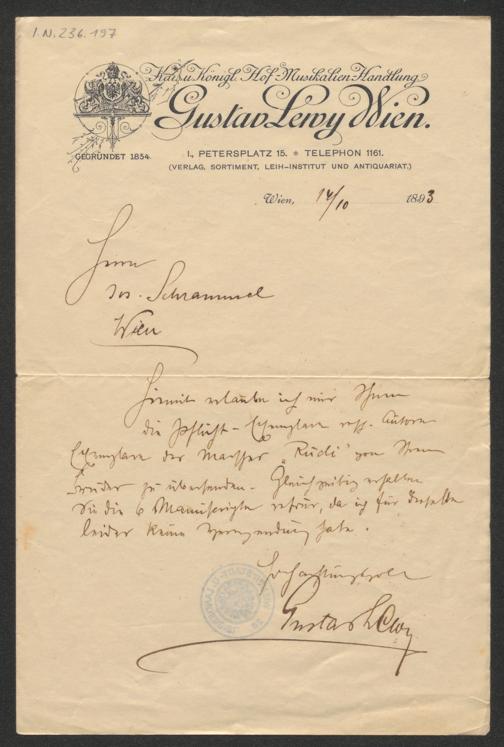 I.N. 236.197
Kais. u. Königl. Hof-Musikalien-Handlung
Gustav Lewy Wien.
GEGRÜNDET 1854.
I., PETERSPLATZ 15. * TELEPHON 1161.
(VERLAG, SORTIMENT, LEIH-INSTITUT UND ANTIQUARIAT.)
Wien, 14/10 1893
Herrn
Jos. Schrammel
Wien
Hiermit erlaube ich mir Ihnen
die Pflicht-Exemplare resp. Autoren
Exemplare der "Rudi" von Ihrem
Bruder zu übersenden. Gleichzeitig erhalten
Sie die 6 Manuscripte retour, da ich für dieselben
leider keine Verwendung habe.
Hochachtungsvoll
Gustav Lewy